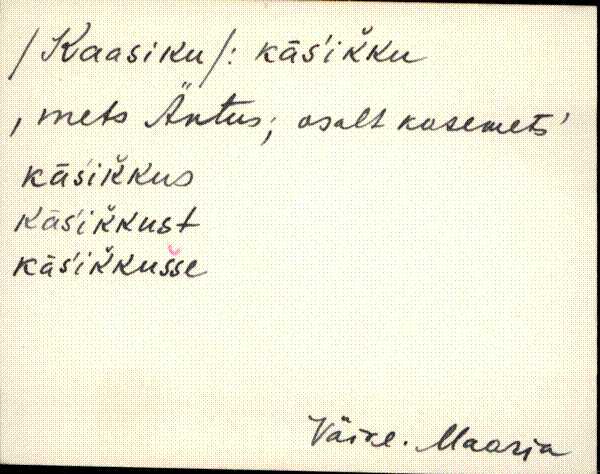 /Kaasiku/: kās'ik̆ku
, mets Äntus; osalt kasemets'
kās'ik̆kus
kās'ik̆kust
kās'ik̆kus̆se
Väike. Maarja